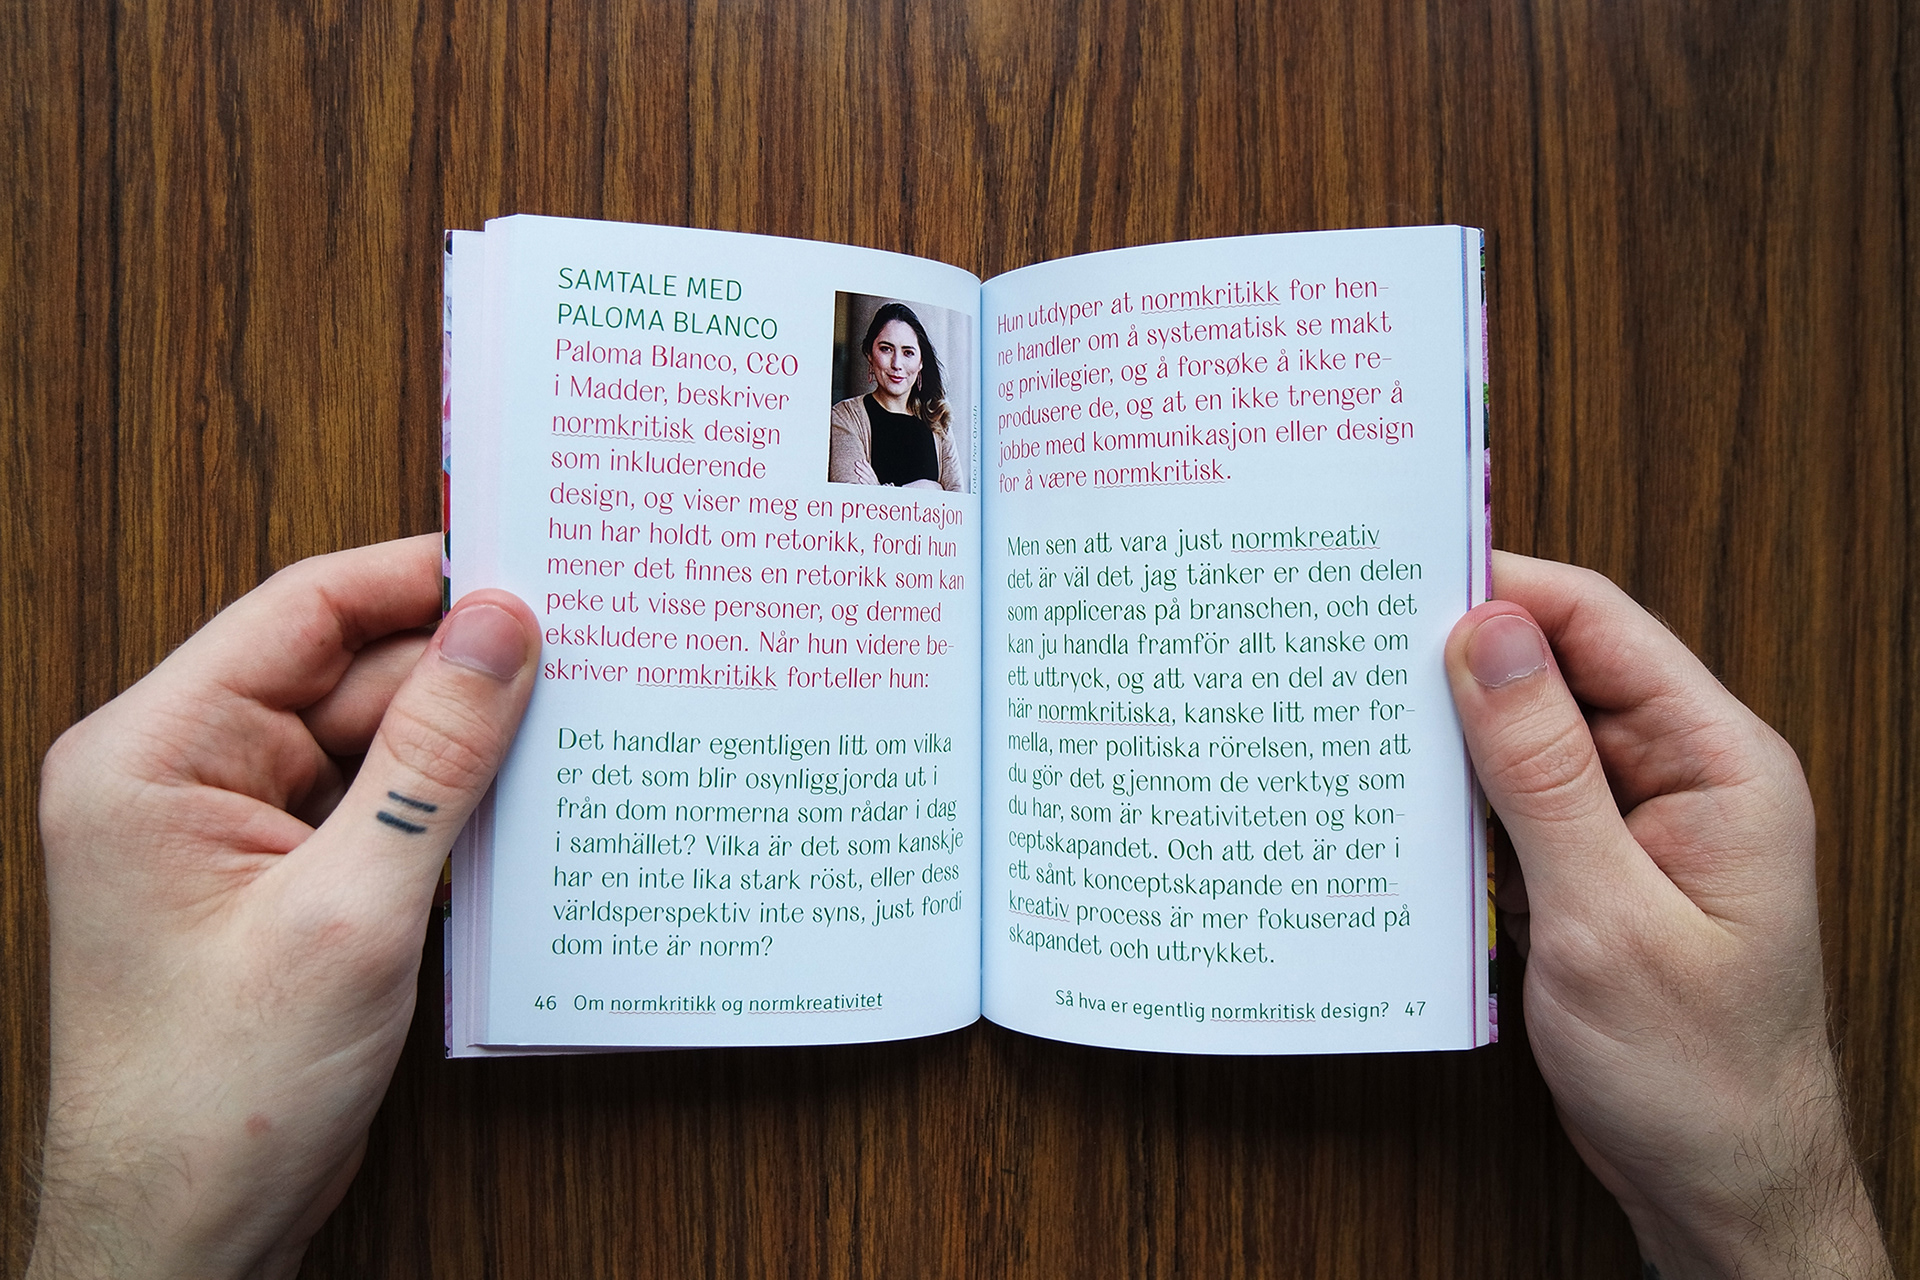 SAMTALE MED
PALOMA BLANCO
Paloma Blanco, CEO
i Madder, beskriver
normkritisk design
som inkluderende
design, og viser meg en presentasjon
hun har holdt om retorikk, fordi hun
mener det finnes en retorikk som kan
peke ut visse personer, og dermed
ekskludere noen. Når hun videre be-
skriver normkritikk forteller hun:
Foto: Per Groth
Det handlar egentligen litt om vilka
er det som blir osynliggjorda ut i
från dom normerna som rådar i dag
i samhället? Vilka är det som kanskje
har en inte lika stark röst, eller dess
världsperspektiv inte syns, just fordi
dom inte är norm?
46 Om normkritikk og normkreativitet
Hun utdyper at normkritikk for hen-
ne handler om å systematisk se makt
og privilegier, og å forsøke å ikke re-
produsere de, og at en ikke trenger å
jobbe med kommunikasjon eller design
for å være normkritisk.
Men sen att vara just normkreativ
det är väl det jag tänker er den delen
som appliceras på branschen, och det
kan ju handla framför allt kanske om
ett uttryck, og att vara en del av den
här normkritiska, kanske litt mer for-
mella, mer politiska rörelsen, men att
du gör det gjennom de verktyg som
du har, som är kreativiteten og kon-
ceptskapandet. Och att det är der i
ett sånt konceptskapande en norm-
kreativ process är mer fokuserad på
skapandet och uttrykket.
Så hva er egentlig normkritisk design? 47